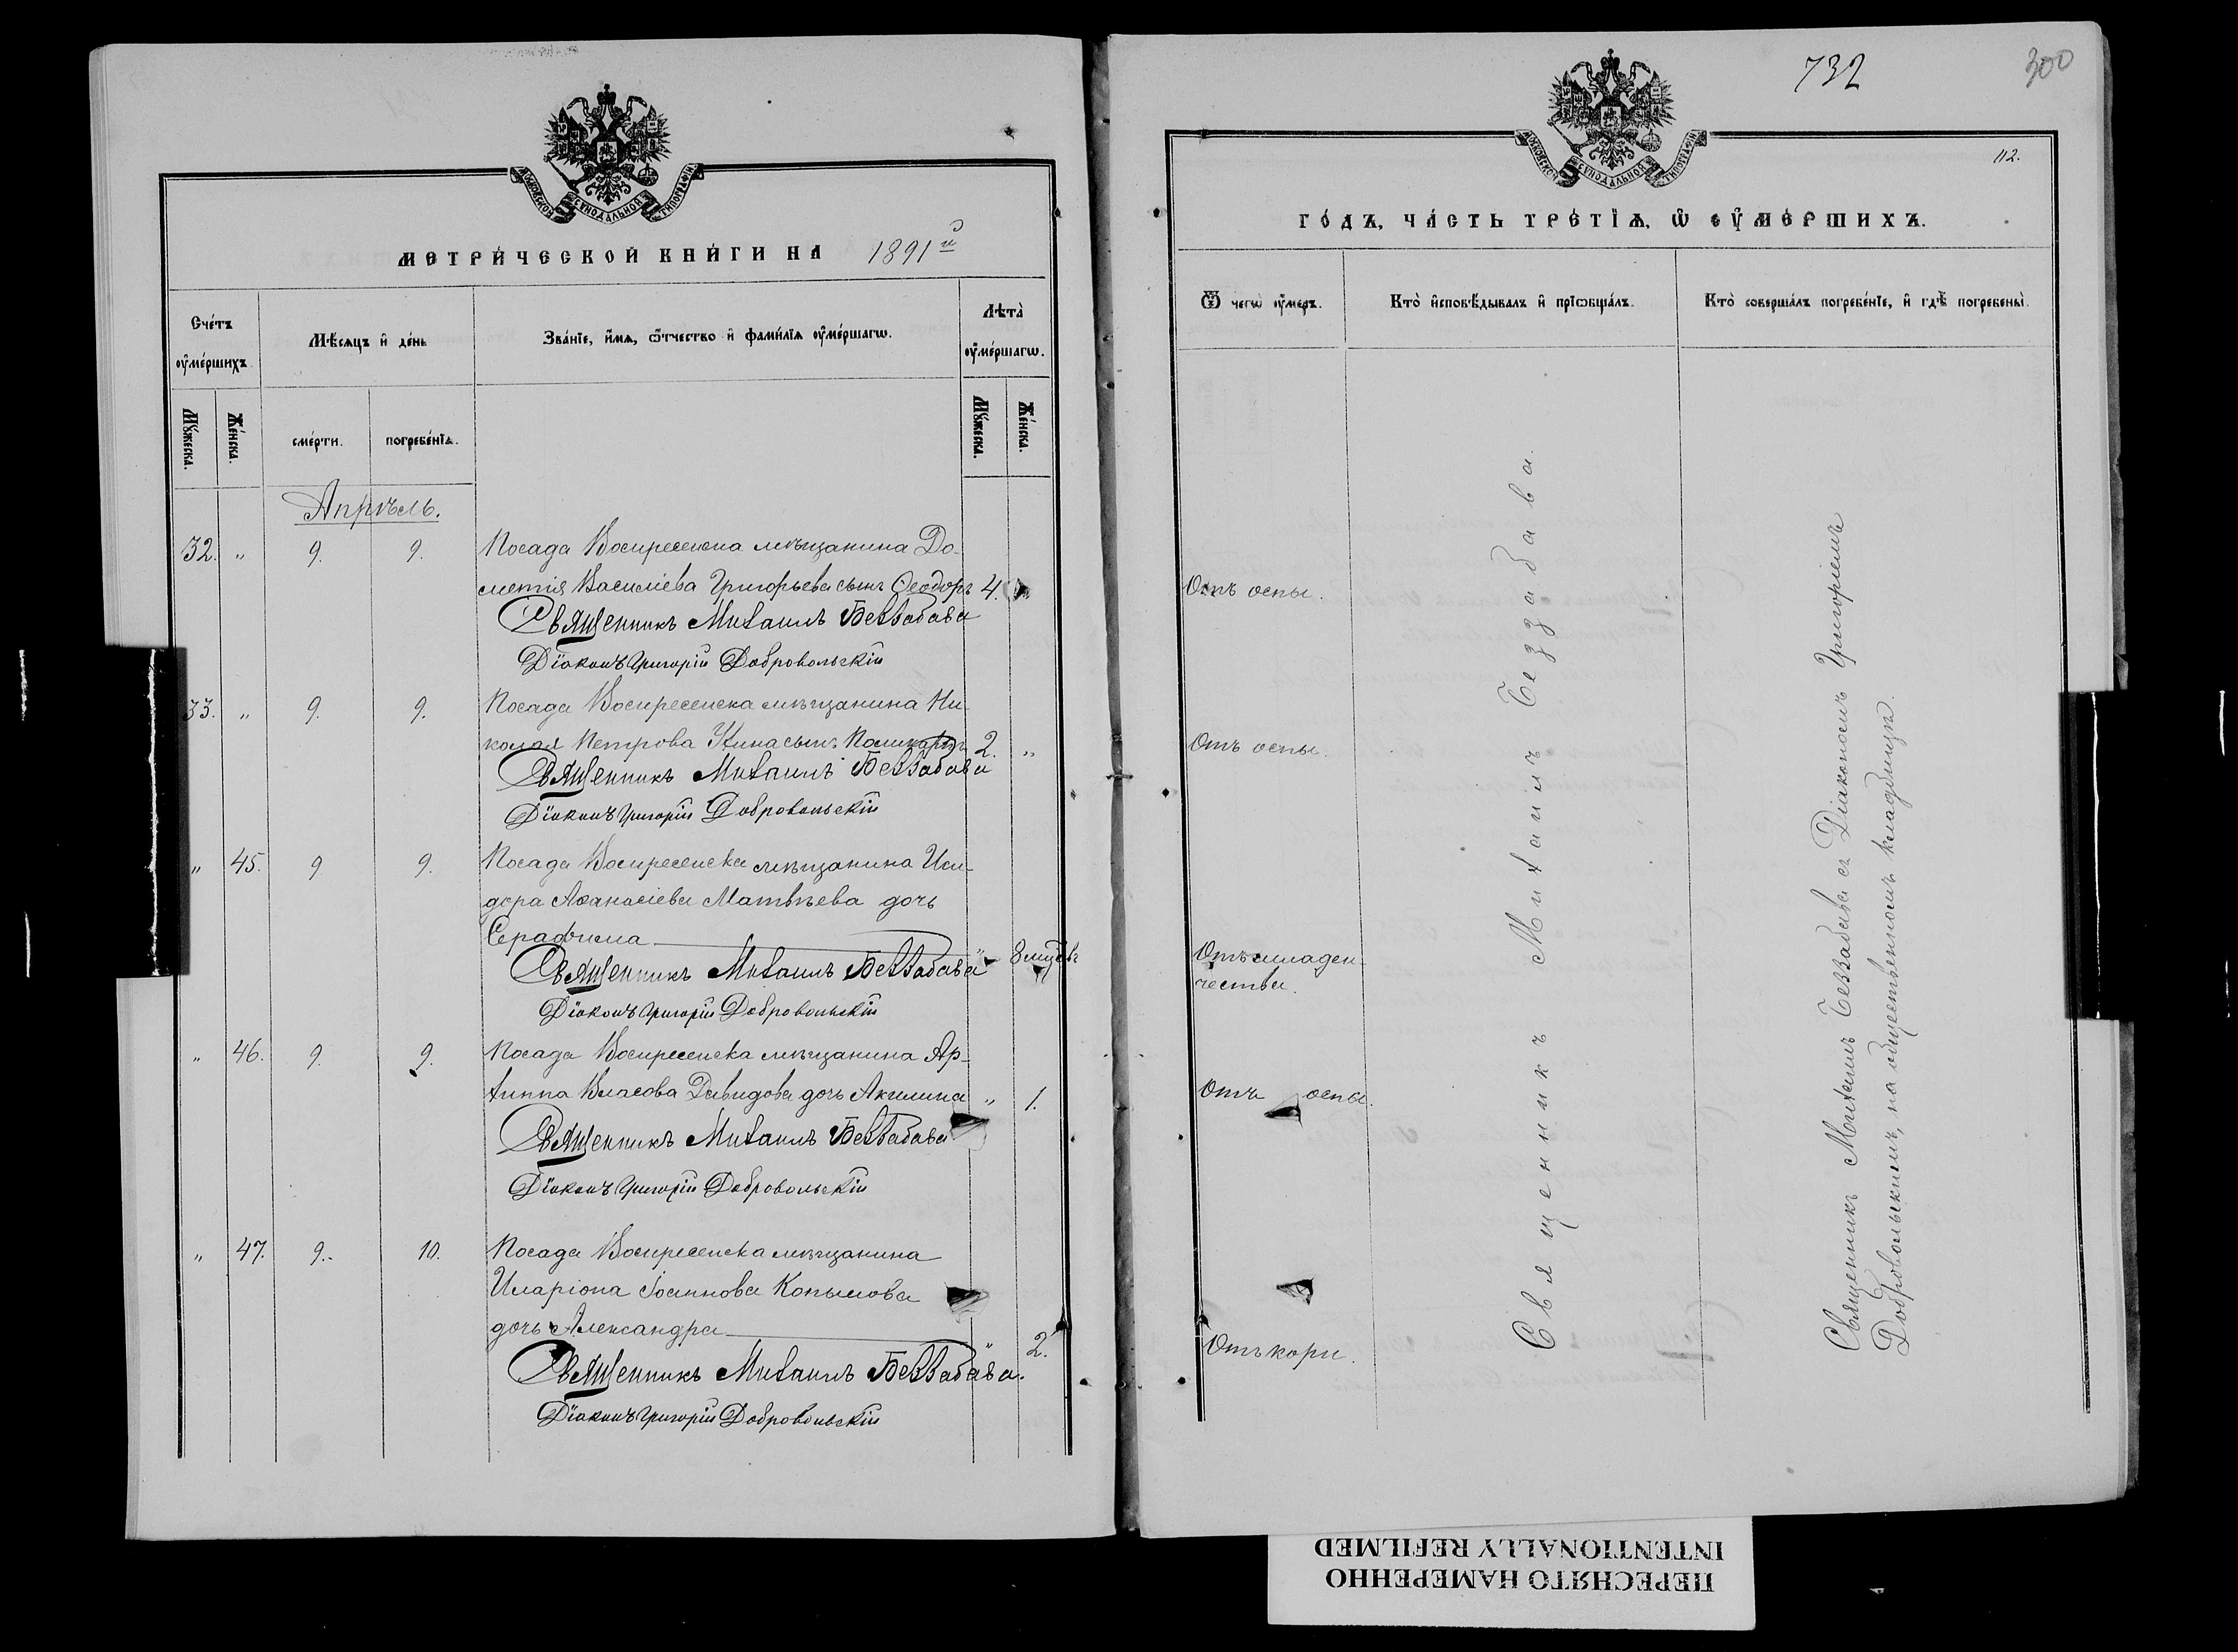 МОСКОВСКОЙ СѴНОДАЛЬНОЙ ТИПОГРАФІИ
МЕТРИ́ЧЕСКОЙ КНИ́ГИ НА 1891й
Сче́тъ ᲂу҆ме́ршихъ.
Мѣ́сяцъ и҆ де́нь
Зва́нїе, и҆́мѧ, ѻ҆́тчество и҆ фами́лїѧ ᲂу҆ме́ршагѡ.
Лѣта̀ ᲂу҆ме́ршагѡ.
Мꙋ́жеска.
Же́нска.
сме́рти.
погребе́нїѧ.
Мꙋ́жеска.
Же́нска.
Апрѣль.
32. " 9. 9. Посада Воскресенска мѣщанина До-
метія Василіева Григорьева сынъ Ѳеодоръ 4. "
Священникъ Михаилъ Беззабава
Діаконъ Григорій Добровольскій
33. " 9. 9. Посада Воскресенска мѣщанина Ни-
колая Петрова сынъ Поликарпъ 2. "
Священникъ Михаилъ Беззабава
Діаконъ Григорій Добровольскій
" 45. 9. 9. Посада Воскресенска мѣщанина Иси-
дора Аѳанасіева Матвѣева дочь
Серафима " 8 мцвъ
Священникъ Михаилъ Беззабава
Діаконъ Григорій Добровольскій
" 46. 9. 9. Посада Воскресенска мѣщанина Ар-
хиппа Власова Давидова дочь Акилина " 1.
Священникъ Михаилъ Беззабава
Діаконъ Григорій Добровольскій
" 47. 9. 10. Посада Воскресенска мѣщанина
Иларіона Іоаннова Копылова
дочь Александра " 2.
Священникъ Михаилъ Беззабава.
Діаконъ Григорій Добровольскій
732
300
112.
МОСКОВСКОЙ СѴНОДАЛЬНОЙ ТИПОГРАФІИ
ГО́ДЪ, ЧА́СТЬ ТРЕ́ТЇѦ, Ѡ҆ ᲂУ҆МЕ́РШИХЪ.
Ѿ чегѡ̀ ᲂу҆́меръ.
Кто̀ и҆сповѣ́дывалъ и҆ прїѡбща́лъ.
Кто̀ соверша́лъ погребе́нїе, и҆ гдѣ̀ погребены̀.
Отъ оспы.
Отъ оспы.
Отъ младен-
чества.
Отъ оспы.
Отъ кори.
Священникъ Михаилъ Беззабава.
Священникъ Михаилъ Беззабава съ Діакономъ Григоріемъ
Добровольскимъ, на общественномъ кладбищѣ.
ПЕРЕСНЯТО НАМЕРЕННО
INTENTIONALLY REFILMED